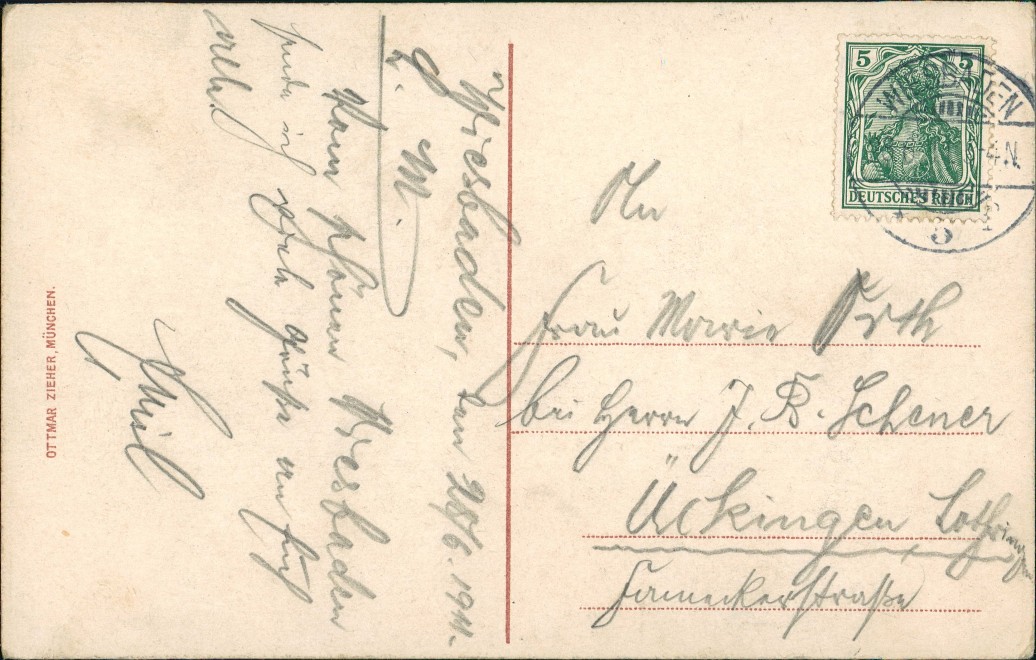 Wiesbaden, den 28/6. 1911.
L. M.
Vom schönen Wiesbaden
sende ich viele Grüße an Euch
alle.
OTTMAR ZIEHER, MÜNCHEN.
5 5
DEUTSCHES REICH
WIESBADEN
4-N.
5
An
Frau Marie Orth
bei Herrn J. B. Schener
Ückingen, Lothringen
Fameckerstraße